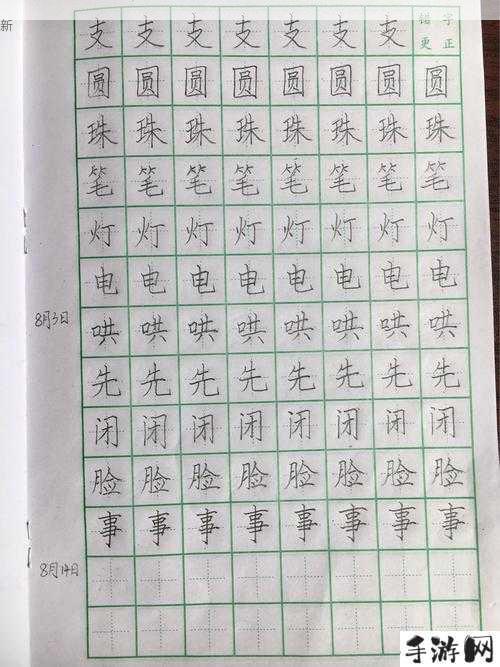 新
支 支 支 支 支 支 支 错字更正
圆 圆 圆 圆 圆 圆 圆 圆
珠 珠 珠 珠 珠 珠 珠 珠
笔 笔 笔 笔 笔 笔 笔 笔
灯 灯 灯 灯 灯 灯 灯 灯
电 电 电 电 电 电 电 电
8月3日
哄 哄 哄 哄 哄 哄 哄 哄
先 先 先 先 先 先 先 先
闭 闭 闭 闭 闭 闭 闭 闭
脸 脸 脸 脸 脸 脸 脸 脸
事 事 事 事 事 事 事 事
8月14日
手游网